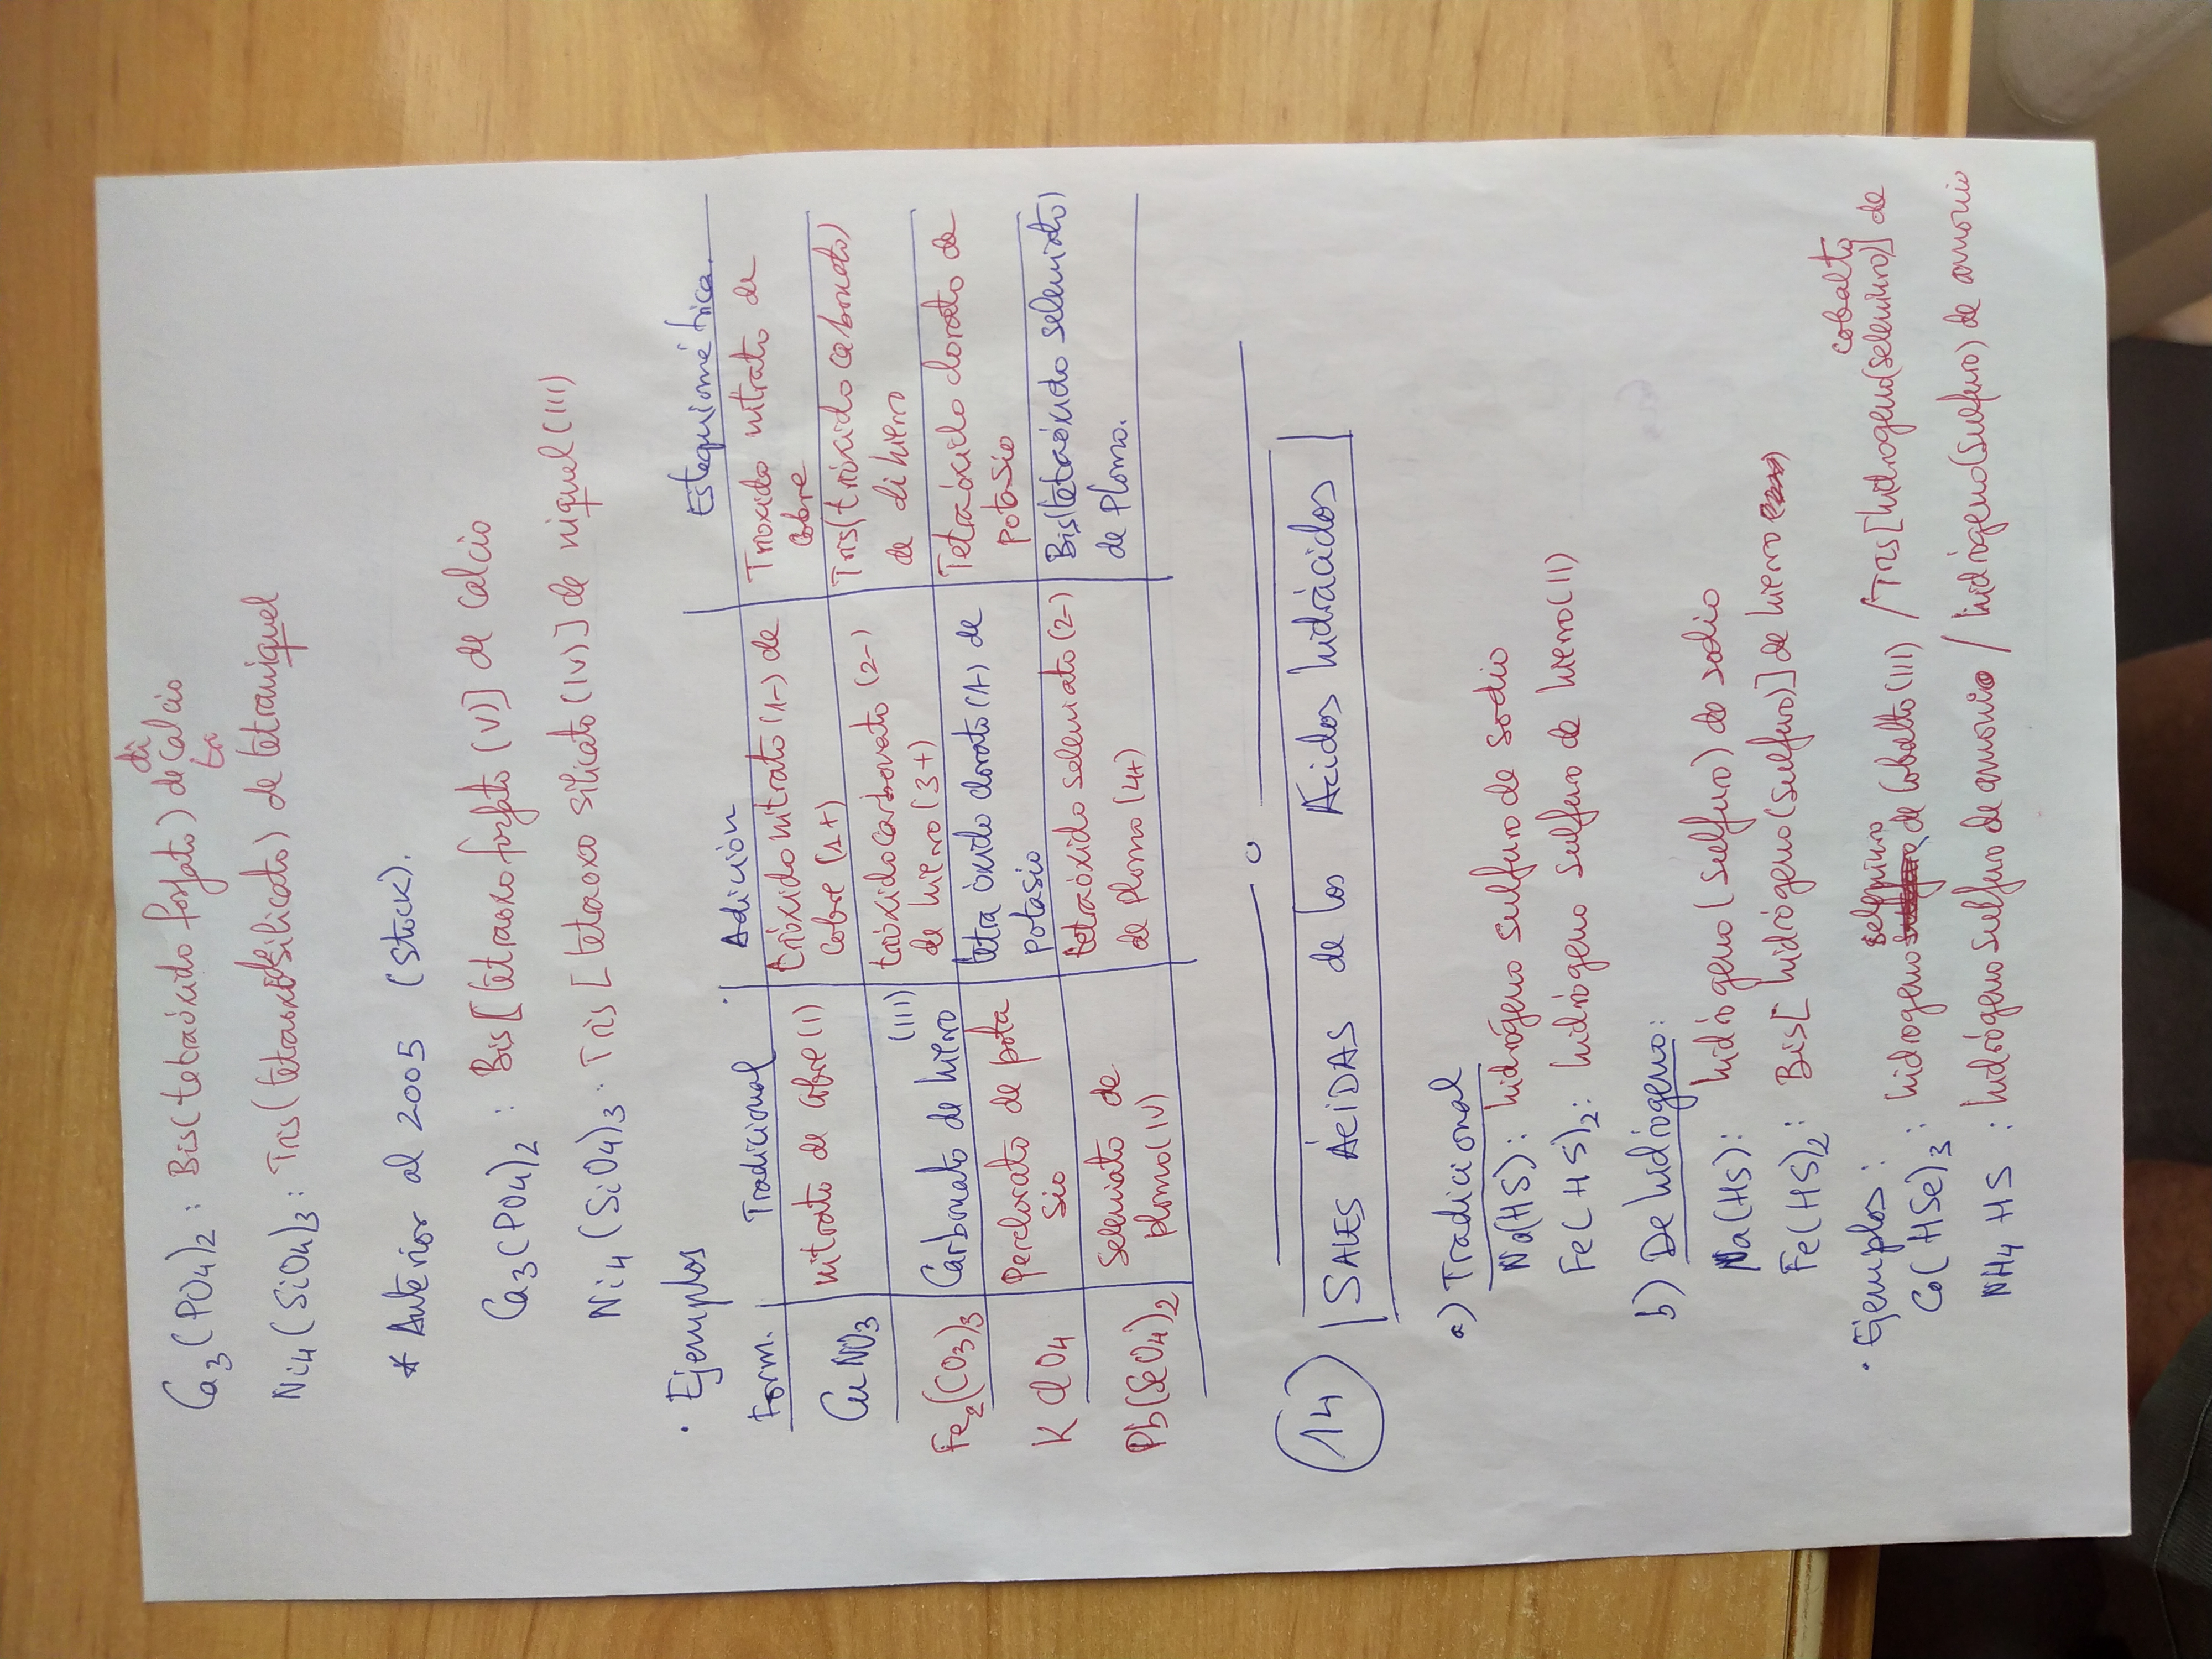 Ca3(PO4)2 : Bis(tetraóxido fosfato) de di Calcio
tri
Ni4(SiO4)3 : Tris(tetraoxidosilicato) de tetraniquel
* Anterior al 2005 (Stock).
Ca3(PO4)2 : Bis[tetraoxofosfato(V)] de Calcio
Ni4(SiO4)3 : Tris[tetraoxo silicato(IV)] de niquel(III)
· Ejemplos
Form. Tradicional Adición Estequiométrica.
CuNO3 nitrato de cobre(I) trióxidonitrato(1-) de cobre(1+) Trioxido nitrato de cobre
Fe2(CO3)3 Carbonato de hierro (III) trióxidocarbonato(2-) de hierro(3+) Tris(trióxido carbonato) de dihierro
KClO4 Perclorato de potasio tetraóxido clorato(1-) de potasio Tetraóxido clorato de potasio
Pb(SeO4)2 Seleniato de plomo(IV) tetraóxido seleniato(2-) de plomo(4+) Bis(tetraóxido seleniato) de Plomo.
14) SALES ÁCIDAS de los Ácidos hidrácidos
a) Tradicional
Na(HS): hidrógeno sulfuro de sodio
Fe(HS)2: hidrógeno sulfuro de hierro(II)
b) De hidrógeno:
Na(HS): hidrógeno(sulfuro) de sodio
Fe(HS)2: Bis[hidrógeno(sulfuro)] de hierro
· Ejemplos:
Co(HSe)3: hidrogeno seleniuro de Cobalto(III) / Tris[hidrogeno(seleniuro)] de cobalto
NH4HS: hidrógeno sulfuro de amonio / hidrógeno(sulfuro) de amonio